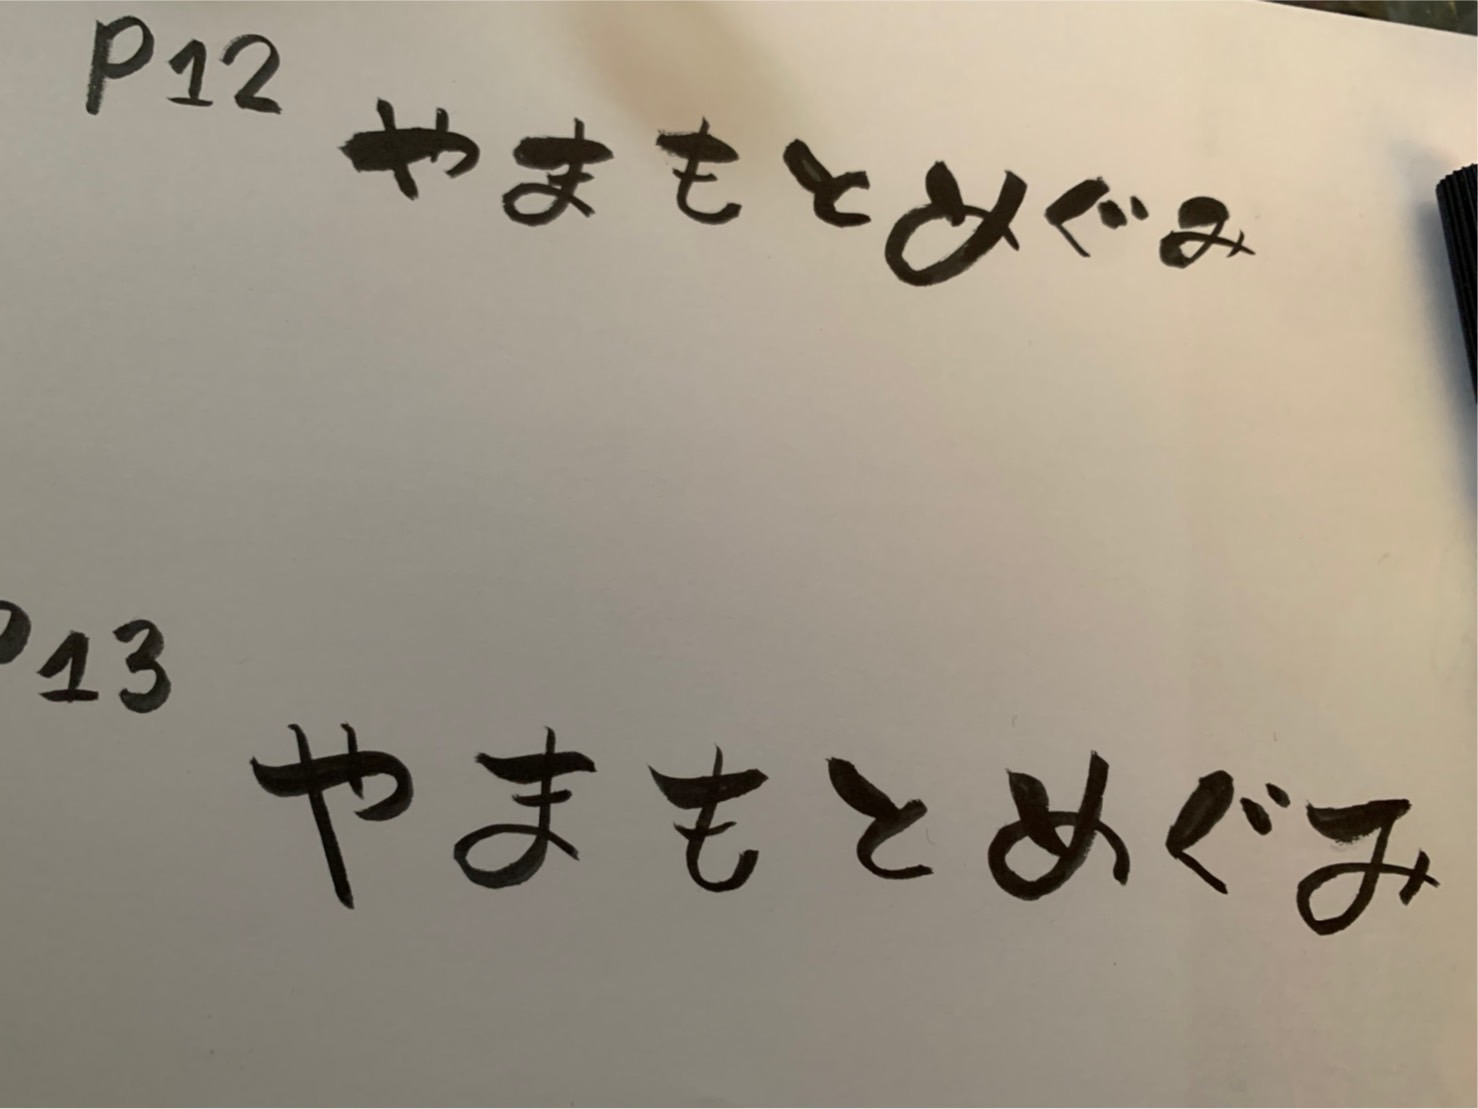 P12
やまもとめぐみ
P13
やまもとめぐみ